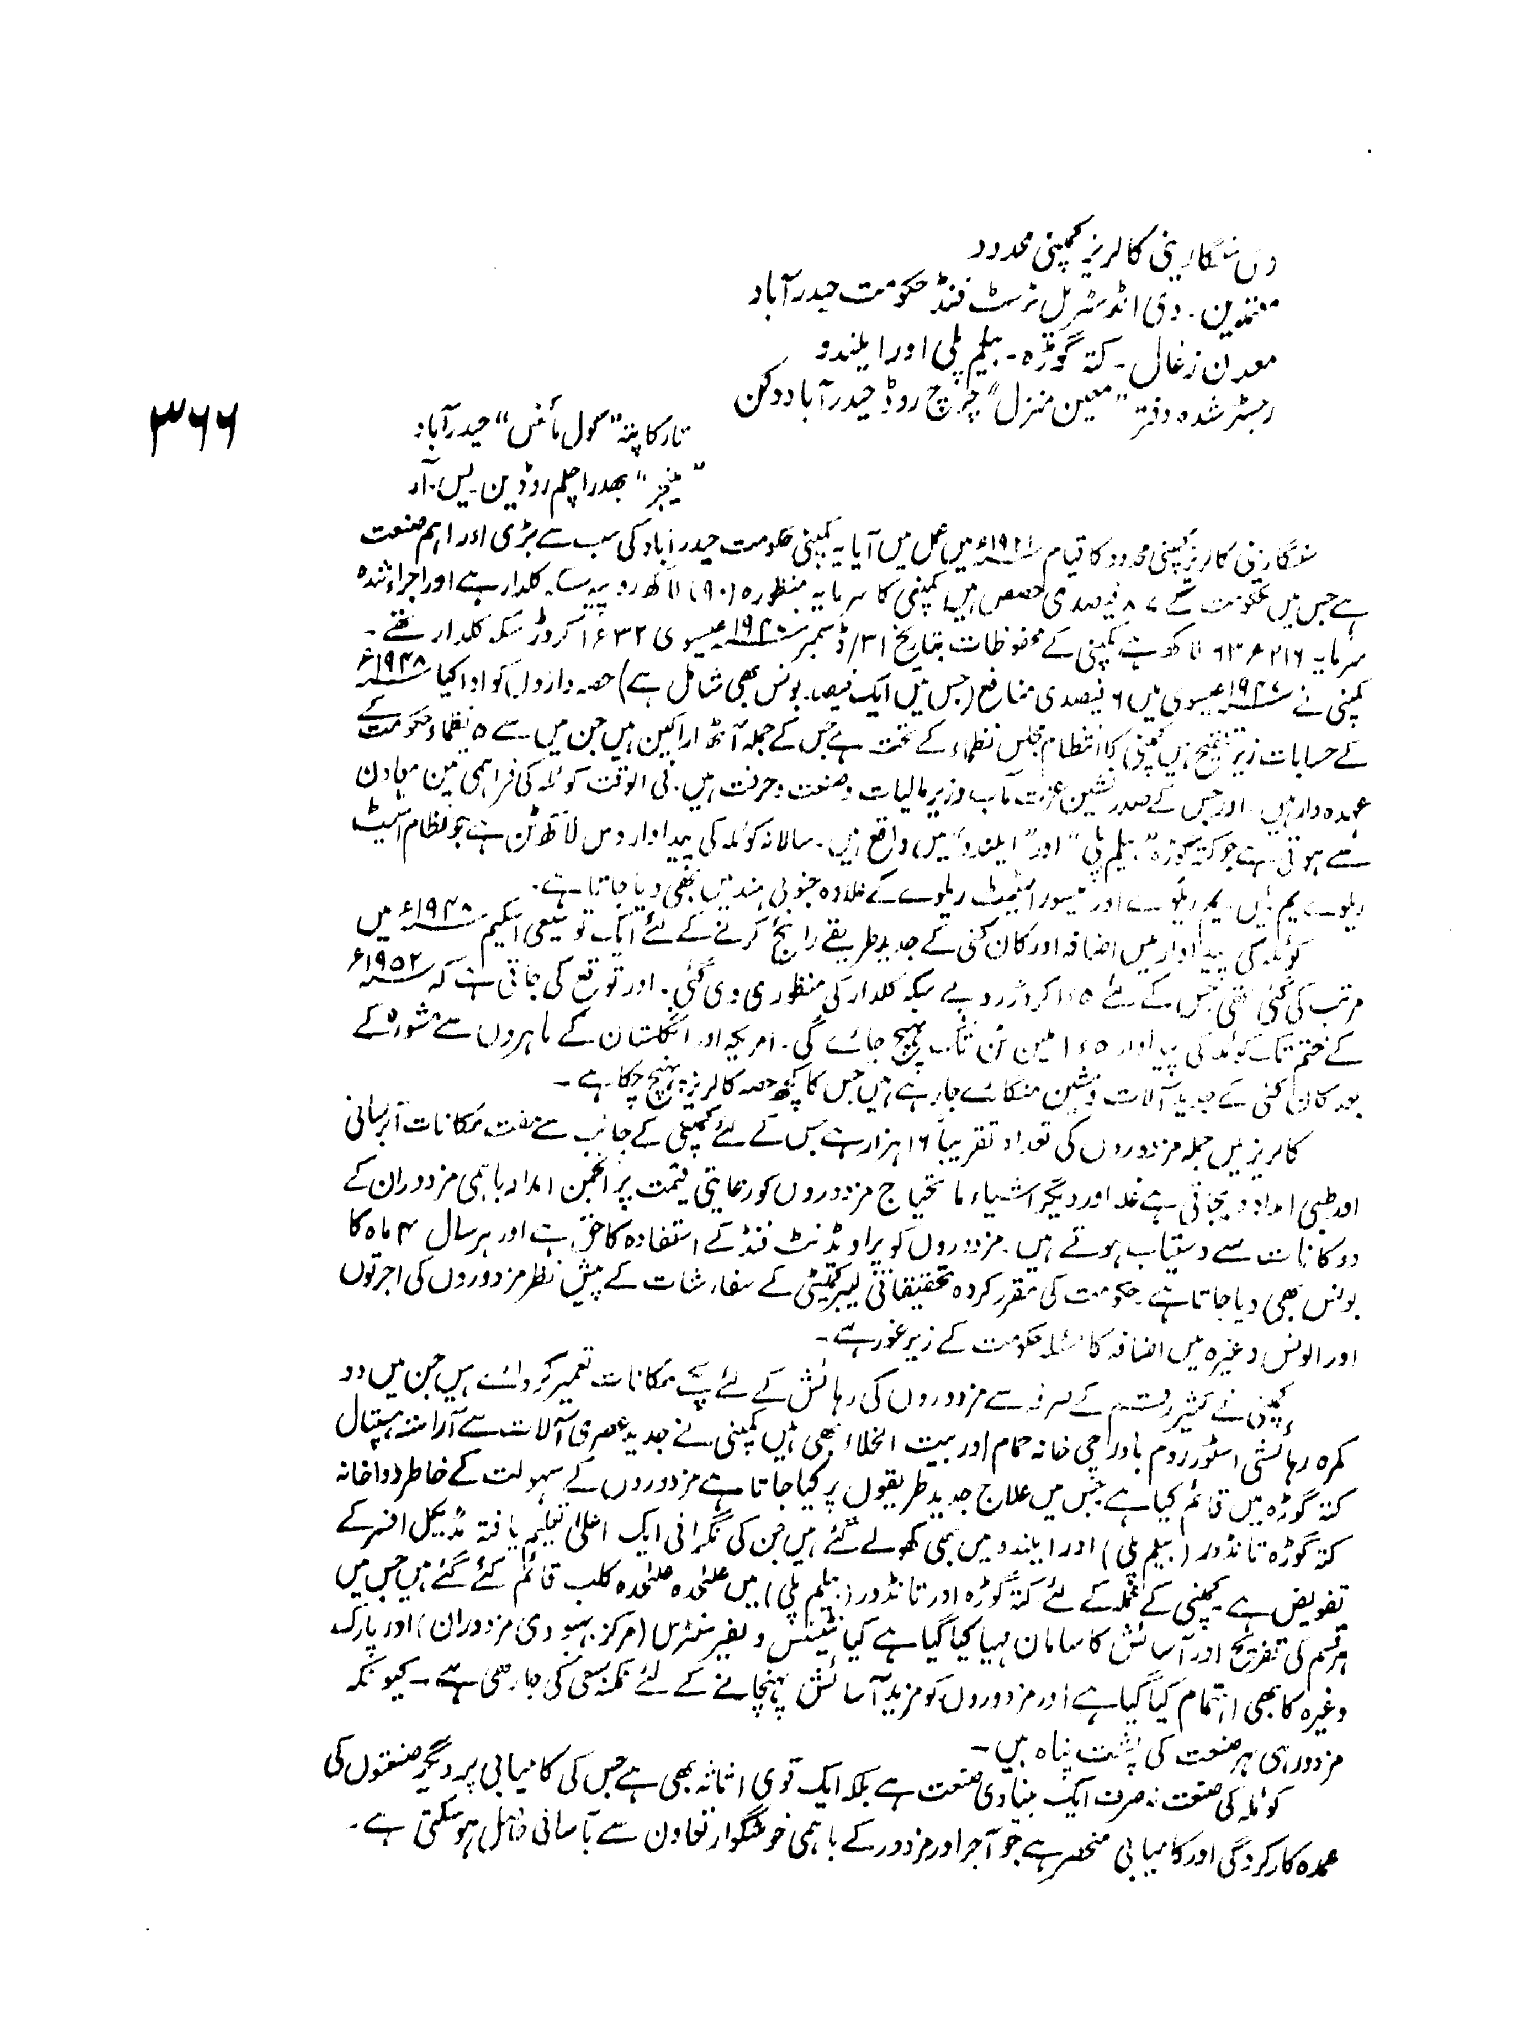 دی سنگارینی کالریز کمپنی محدود
معتمدین ۔ دی انڈسٹریل ٹرسٹ فنڈ حکومت حیدرآباد
معدن زغال ۔ کتہ گوڑہ ۔ بیلم پلی اور ایلندو
رجسٹر شدہ دفتر "معین منزل" چرچ روڈ حیدرآباد دکن
تار کا پتہ "کول مائنس" حیدرآباد
۳۶۶
"مینجر" بھدراچلم روڈ ین ۔ یس ۔ آر
سنگارینی کالریز کمپنی محدود کا قیام ۱۹۲۱ء میں عمل میں آیا یہ کمپنی حکومت حیدرآباد کی سب سے بڑی اور اہم صنعت
ہے جس میں حکومت کے ۸۷ فیصدی حصص ہیں کمپنی کا سرمایہ منظورہ (۹۰) لاکھ روپیہ سکہ کلدار ہے اور اجراء شدہ
سرمایہ ۶۳۶۲۱۶ لاکھ ہے کمپنی کے محفوظات بتاریخ ۳۱/ ڈسمبر ۱۹۴۷ عیسوی ۱۶۳۲ کروڑ سکہ کلدار تھے ۔
کمپنی نے ۱۹۴۷ عیسوی میں ۶ فیصدی منافع (جس میں ایک فیصد بونس بھی شامل ہے) حصہ داروں کو ادا کیا ۱۹۴۸ء
کے حسابات زیر تنقیح ہیں کمپنی کا انتظام مجلس نظماء کے تحت ہے جس کے جملہ آٹھ اراکین ہیں جن میں سے ۵ نظماء حکومت کے
عہدہ دار ہیں ۔ اور جس کے صدر نشین عزت مآب وزیر مالیات و صنعت و حرفت ہیں ۔ فی الوقت کوئلہ کی فراہمی تین معادن
سے ہوتی ہے جو کتہ گوڑہ " بیلم پلی " اور " ایلندو " میں واقع ہیں ۔ سالانہ کوئلہ کی پیداوار دس لاکھ ٹن ہے جو نظام اسٹیٹ
ریلوے یم ۔ یس ۔ یم ریلوے اور میسور اسٹیٹ ریلوے کے علاوہ جنوبی ہند میں بھی دیا جاتا ہے ۔
کوئلہ کی پیداوار میں اضافہ اور کان کنی کے جدید طریقے رائج کرنے کے لئے ایک توسیعی اسکیم ۱۹۴۸ء میں
مرتب کی گئی تھی جس کے لئے ۱۶۵ کروڑ روپے سکہ کلدار کی منظوری دی گئی ۔ اور توقع کی جاتی ہے کہ ۱۹۵۲ء
کے ختم تک کوئلہ کی پیداوار ۱۶۵ ملین ٹن تک پہنچ جائے گی ۔ امریکہ اور انگلستان کے ماہروں سے مشورہ کے
بعد کان کنی کے جدید آلات و مشین منگائے جا رہے ہیں جس کا کچھ حصہ کالریز پہنچ چکا ہے ۔
کالریز میں جملہ مزدوروں کی تعداد تقریباً ۱۶ ہزار ہے جس کے لئے کمپنی کے جانب سے مفت مکانات آبرسانی
اور طبی امداد دیجاتی ہے غلہ اور دیگر اشیاء مایحتاج مزدوروں کو رعایتی قیمت پر انجمن امداد باہمی مزدوران کے
دوکانات سے دستیاب ہوتے ہیں ۔ مزدوروں کو پراویڈنٹ فنڈ کے استفادہ کا حق ہے اور ہر سال ۴ ماہ کا
بونس بھی دیا جاتا ہے ۔ حکومت کی مقرر کردہ تحقیقاتی لیبر کمیٹی کے سفارشات کے پیش نظر مزدوروں کی اجرتوں
اور الونس وغیرہ میں اضافہ کا مسئلہ حکومت کے زیر غور ہے ۔
کمپنی نے کثیر رقم کے صرفہ سے مزدوروں کی رہائش کے لئے پکے مکانات تعمیر کروائے ہیں جن میں دو
کمرہ رہائشی اسٹور روم باورچی خانہ حمام اور بیت الخلاء بھی ہیں کمپنی نے جدید عصری آلات سے آراستہ ہسپتال
کتہ گوڑہ میں قائم کیا ہے جس میں علاج جدید طریقوں پر کیا جاتا ہے مزدوروں کے سہولت کے خاطر دواخانہ
کتہ گوڑہ تانڈور (بیلم پلی) اور ایلندو میں بھی کھولے گئے ہیں جن کی نگرانی ایک اعلیٰ تعلیم یافتہ مڈیکل افسر کے
تفویض ہے ۔ کمپنی کے عملہ کے لئے کتہ گوڑہ اور تانڈور (بیلم پلی) میں علٰحدہ علٰحدہ کلب قائم کئے گئے ہیں جس میں
ہر قسم کی تفریح اور آسائش کا سامان مہیا کیا گیا ہے کیانٹینس ویلفیر سنٹرس (مرکز بہبودی مزدوران) اور پارک
وغیرہ کا بھی اہتمام کیا گیا ہے اور مزدوروں کو مزید آسائش پہنچانے کے لئے ممکنہ سعی کی جا رہی ہے ۔ کیونکہ
مزدور ہی ہر صنعت کی پشت پناہ ہیں ۔
کوئلہ کی صنعت نہ صرف ایک بنیادی صنعت ہے بلکہ ایک قومی اثاثہ بھی ہے جس کی کامیابی پر دیگر صنعتوں کی
عمدہ کارکردگی اور کامیابی منحصر ہے جو آجر اور مزدور کے باہمی خوشگوار تعاون سے بآسانی حاصل ہو سکتی ہے ۔